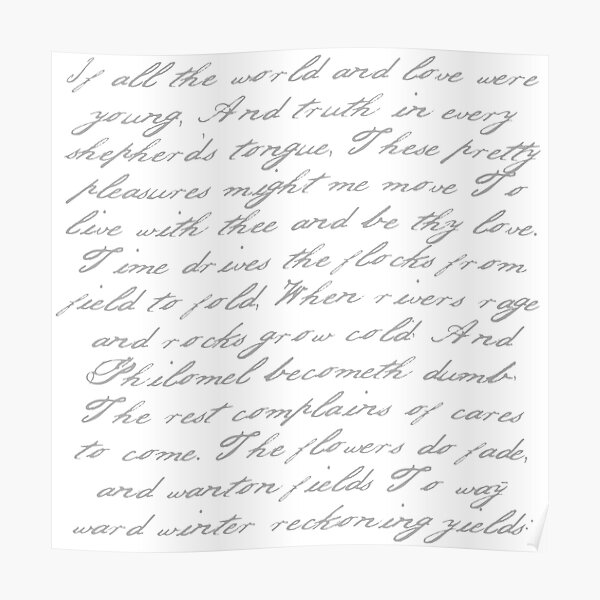 If all the world and love were
young, And truth in every
shepherd's tongue, These pretty
pleasures might me move To
live with thee and be thy love.
Time drives the flocks from
field to fold, When rivers rage
and rocks grow cold And
Philomel becometh dumb
The rest complains of cares
to come. The flowers do fade,
and wanton fields To way
ward winter reckoning yields: